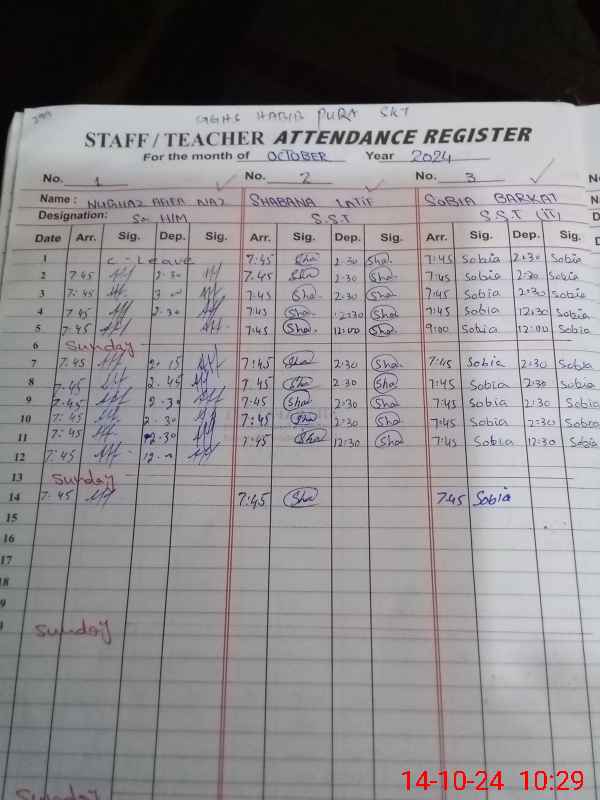 GGHS HABIB PURA SKT
STAFF / TEACHER ATTENDANCE REGISTER
For the month of OCTOBER Year 2024
No. 1 No. 2 No. 3
Name : NAZ SHABANA LATIF SOBIA BARKAT
Designation: Sr HM S.S.T S.S.T (IT)
Date Arr. Sig. Dep. Sig. Arr. Sig. Dep. Sig. Arr. Sig. Dep. Sig.
1 C-Leave 7:45 Sha 2:30 Sha 7:45 Sobia 2:30 Sobia
2 7:45 2:30 7:45 Sha 2:30 Sha 7:45 Sobia 2:30 Sobia
3 7:45 7:45 Sha 2:30 Sha 7:45 Sobia 2:30 Sobia
4 7:45 2:30 7:45 Sha 12:30 Sha 7:45 Sobia 12:30 Sobia
5 7:45 7:45 Sha 12:00 Sha 9:00 Sobia 12:00 Sobia
6 Sunday
7 7:45 2:15 7:45 Sha 2:30 Sha 7:45 Sobia 2:30 Sobia
8 7:45 2:45 7:45 Sha 2:30 Sha 7:45 Sobia 2:30 Sobia
9 7:45 2:30 7:45 Sha 2:30 Sha 7:45 Sobia 2:30 Sobia
10 7:45 2:30 7:45 Sha 2:30 Sha 7:45 Sobia 2:30 Sobia
11 7:45 2:30 7:45 Sha 12:30 Sha 7:45 Sobia 12:30 Sobia
12 7:45
13 Sunday
14 7:45 7:45 Sha 7:45 Sobia
15
16
17
18
9
Sunday
Sunday
14-10-24 10:29